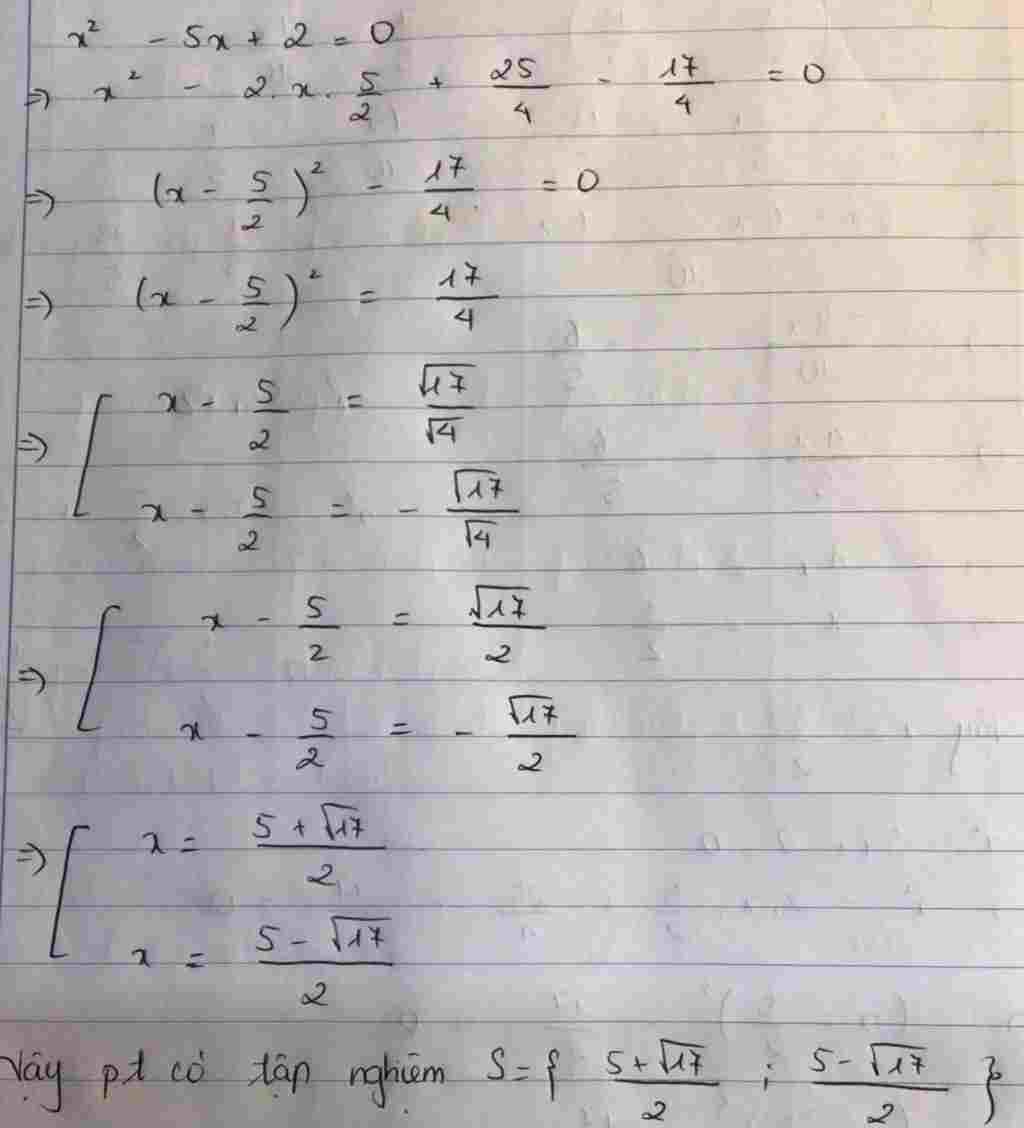 x² - 5x + 2 = 0
=> x² - 2.x.5/2 + 25/4 - 17/4 = 0
=> (x - 5/2)² - 17/4 = 0
=> (x - 5/2)² = 17/4
=> [ x - 5/2 = √17/√4
x - 5/2 = - √17/√4
=> [ x - 5/2 = √17/2
x - 5/2 = - √17/2
=> [ x = (5 + √17)/2
x = (5 - √17)/2
Vậy pt có tập nghiệm S = { (5+√17)/2 ; (5-√17)/2 }